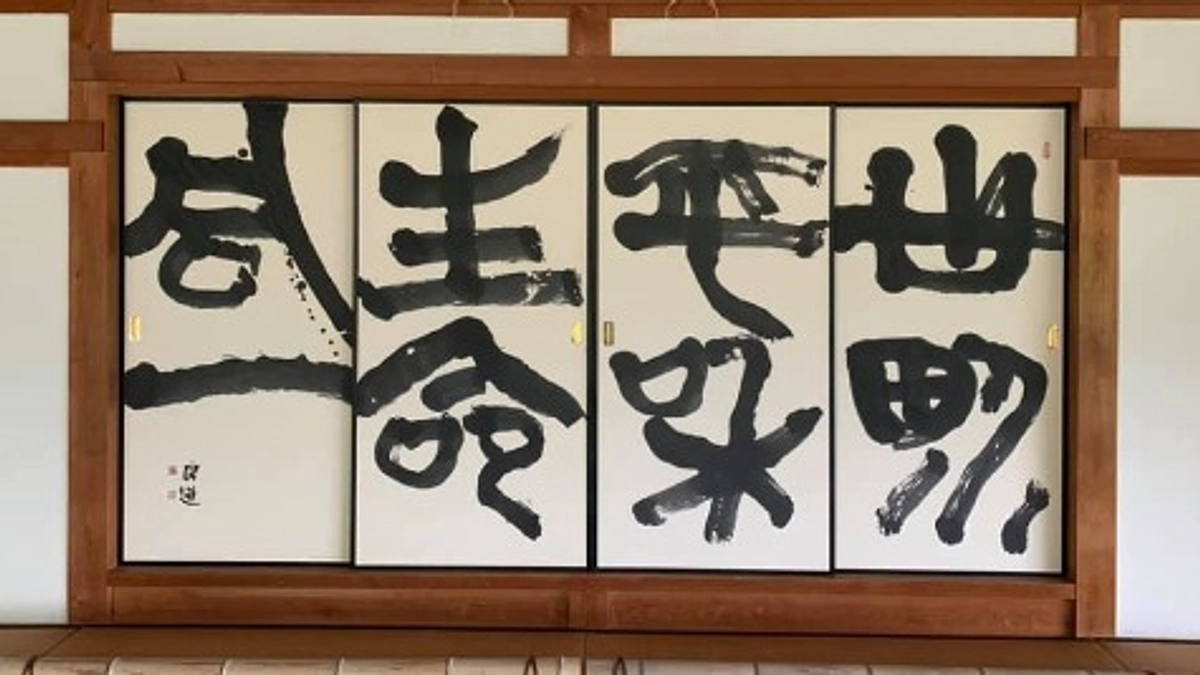 世界
平和
生命
一